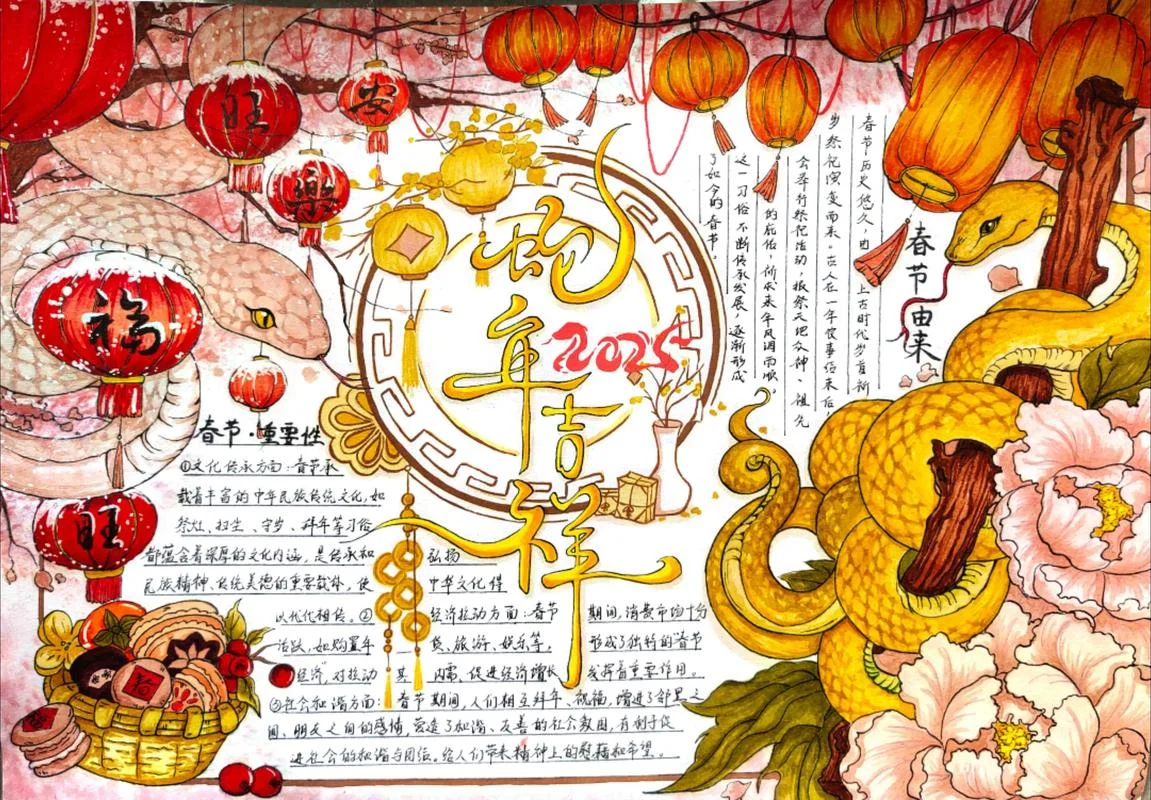 旺
安
樂
福
旺
蛇
年
2025
吉
祥
春节由来
春节历史悠久,由上古时代岁首祈
岁祭祀演变而来。古人在一年农事结束后,
会举行祭祀活动,报祭天地众神、祖先
的庇佑,祈求来年风调雨顺。
这一习俗不断传承发展,逐渐形成
了如今的春节。
春节·重要性
①文化传承方面:春节承
载着丰富的中华民族传统文化,如
祭灶、扫尘、守岁、拜年等习俗
都蕴含着深厚的文化内涵,是传承和 弘扬
民族精神、传统美德的重要载体,使 中华文化得
以代代相传。② 经济拉动方面:春节 期间,消费市场十分
活跃,如购置年 货、旅游、娱乐等, 形成了独特的"春节
经济",对拉动 其 内需,促进经济增长 发挥着重要作用。
③社会和谐方面:春节期间,人们相互拜年、祝福,增进了邻里之
间、朋友之间的感情,营造了和谐、友善的社会氛围,有利于促
进社会的和谐与团结。给人们带来精神上的慰藉和希望。
春